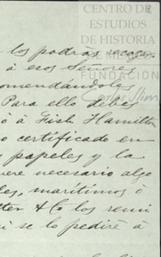 CENTRO DE
ESTUDIOS
DE HISTORIA
FUNDACIÓN
los podrás recoger
á esos Señores
omendandoles
Para ello debes
ó á Fish Hamilton
o certificado en
papeles y la
uere necesario algo
les, marítimos ó
tten & Co los remi
si se lo pediré á